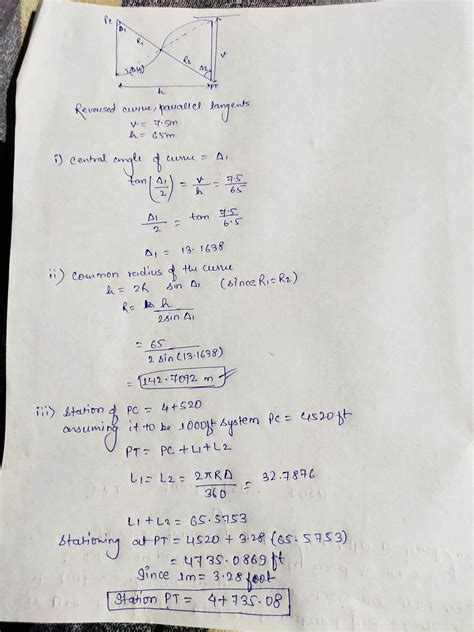 PC
Δ1
R1
R2
Δ2
V
PT
h
Reversed curve, parallel tangents
V = 7.5m
h = 65m
i) central angle of curve = Δ1
tan(Δ1/2) = V/h = 7.5/65
Δ1/2 = tan 7.5/6.5
Δ1 = 13.1638
ii) Common radius of the curve
h = 2R sin Δ1 (since R1 = R2)
R = h/2 sin Δ1
= 65/2 sin(13.1638)
= 142.7092 m
iii) Station of PC = 4+520
assuming it to be 1000ft system PC = 4520 ft
PT = PC + L1 + L2
L1 = L2 = 2πRΔ/360 = 32.7876
L1 + L2 = 65.5753
Stationing at PT = 4520 + 3.28 (65.5753)
= 4735.0869 ft
Since 1m = 3.28 foot
Station PT = 4+735.08